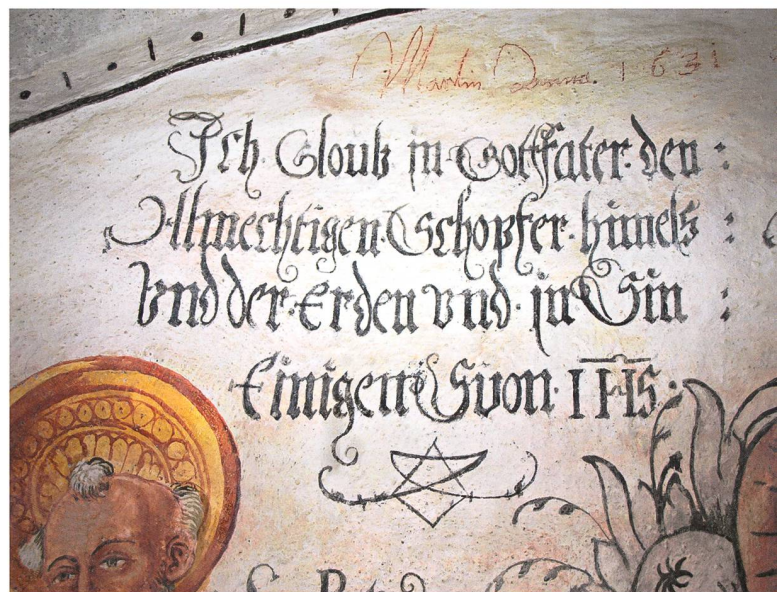 Martin 1631
Ich Gloub in Gottfater den :
Allmechtigen Schopfer himels :
Vnd der Erden vnd in Sin :
Einigen Suon IHS
S Pet